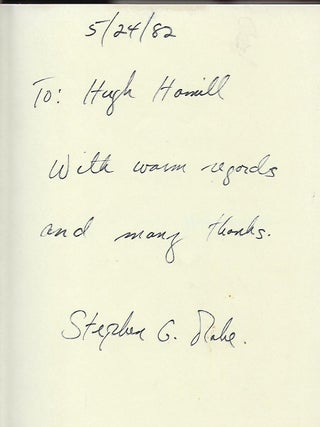 5/24/82
To: Hugh Hamill
With warm regards
and many thanks.
Stephen G. Rabe.